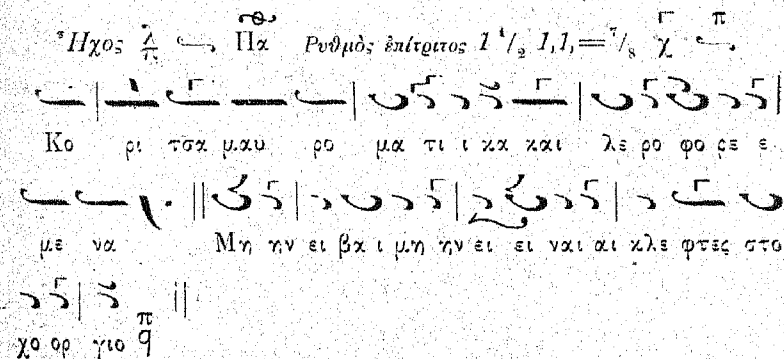 Ἦχος Πα Ρυθμὸς ἐπίτριτος 1 1/2 1,1,=7/8 χ π
Κο ρι τσα μαυ ρο μα τι ι κα και λε ρο φο ρε ε
με να Μη ην ει βα ι μη ην ει ει ναι αι κλε φτες στο
χο ορ γιο π q